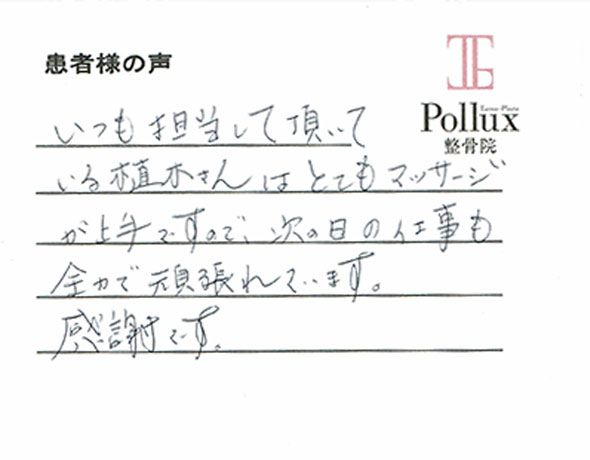 患者様の声
Pollux
整骨院
いつも担当して頂いて
いる植木さんはとてもマッサージ
が上手ですので、次の日の仕事も
全力で頑張れています。
感謝です。